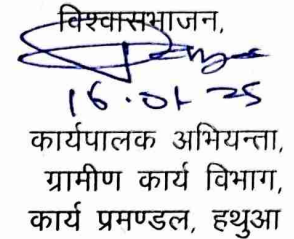 विश्वासभाजन,
16.01.25
कार्यपालक अभियन्ता,
ग्रामीण कार्य विभाग,
कार्य प्रमण्डल, हथुआ